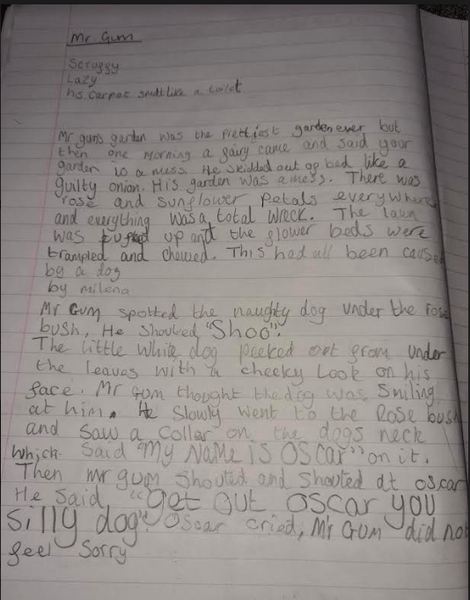 Mr. Gum
Scruggy
Lazy
his carpet smelt like a toilet
Mr gums garden was the prettiest garden ever but
then one morning a gairy came and said your
garden is a mess. He skidded out og bed like a
guilty onion. His garden was a mess. There was
rose and sunglower petals everywhere
and everything was a total wreck. The lawn
was up and the glower beds were
trampled and chewed. This had all been caused
by a dog
by milena
Mr Gum spotted the naughty dog under the rose
bush, He shouted "Shoo".
The little white dog peeked out grom under
the leaves with a cheeky look on his
gace. Mr Gum thought the dog was Smiling
at him. He Slowly went to the Rose bush
and saw a Collar on the dogs neck
which said "My NaMe iS OSCar" on it.
Then mr gum Shouted and Shouted at oscar
He Said "get out oscar you
silly dog". Oscar cried, Mr Gum did not
geel Sorry